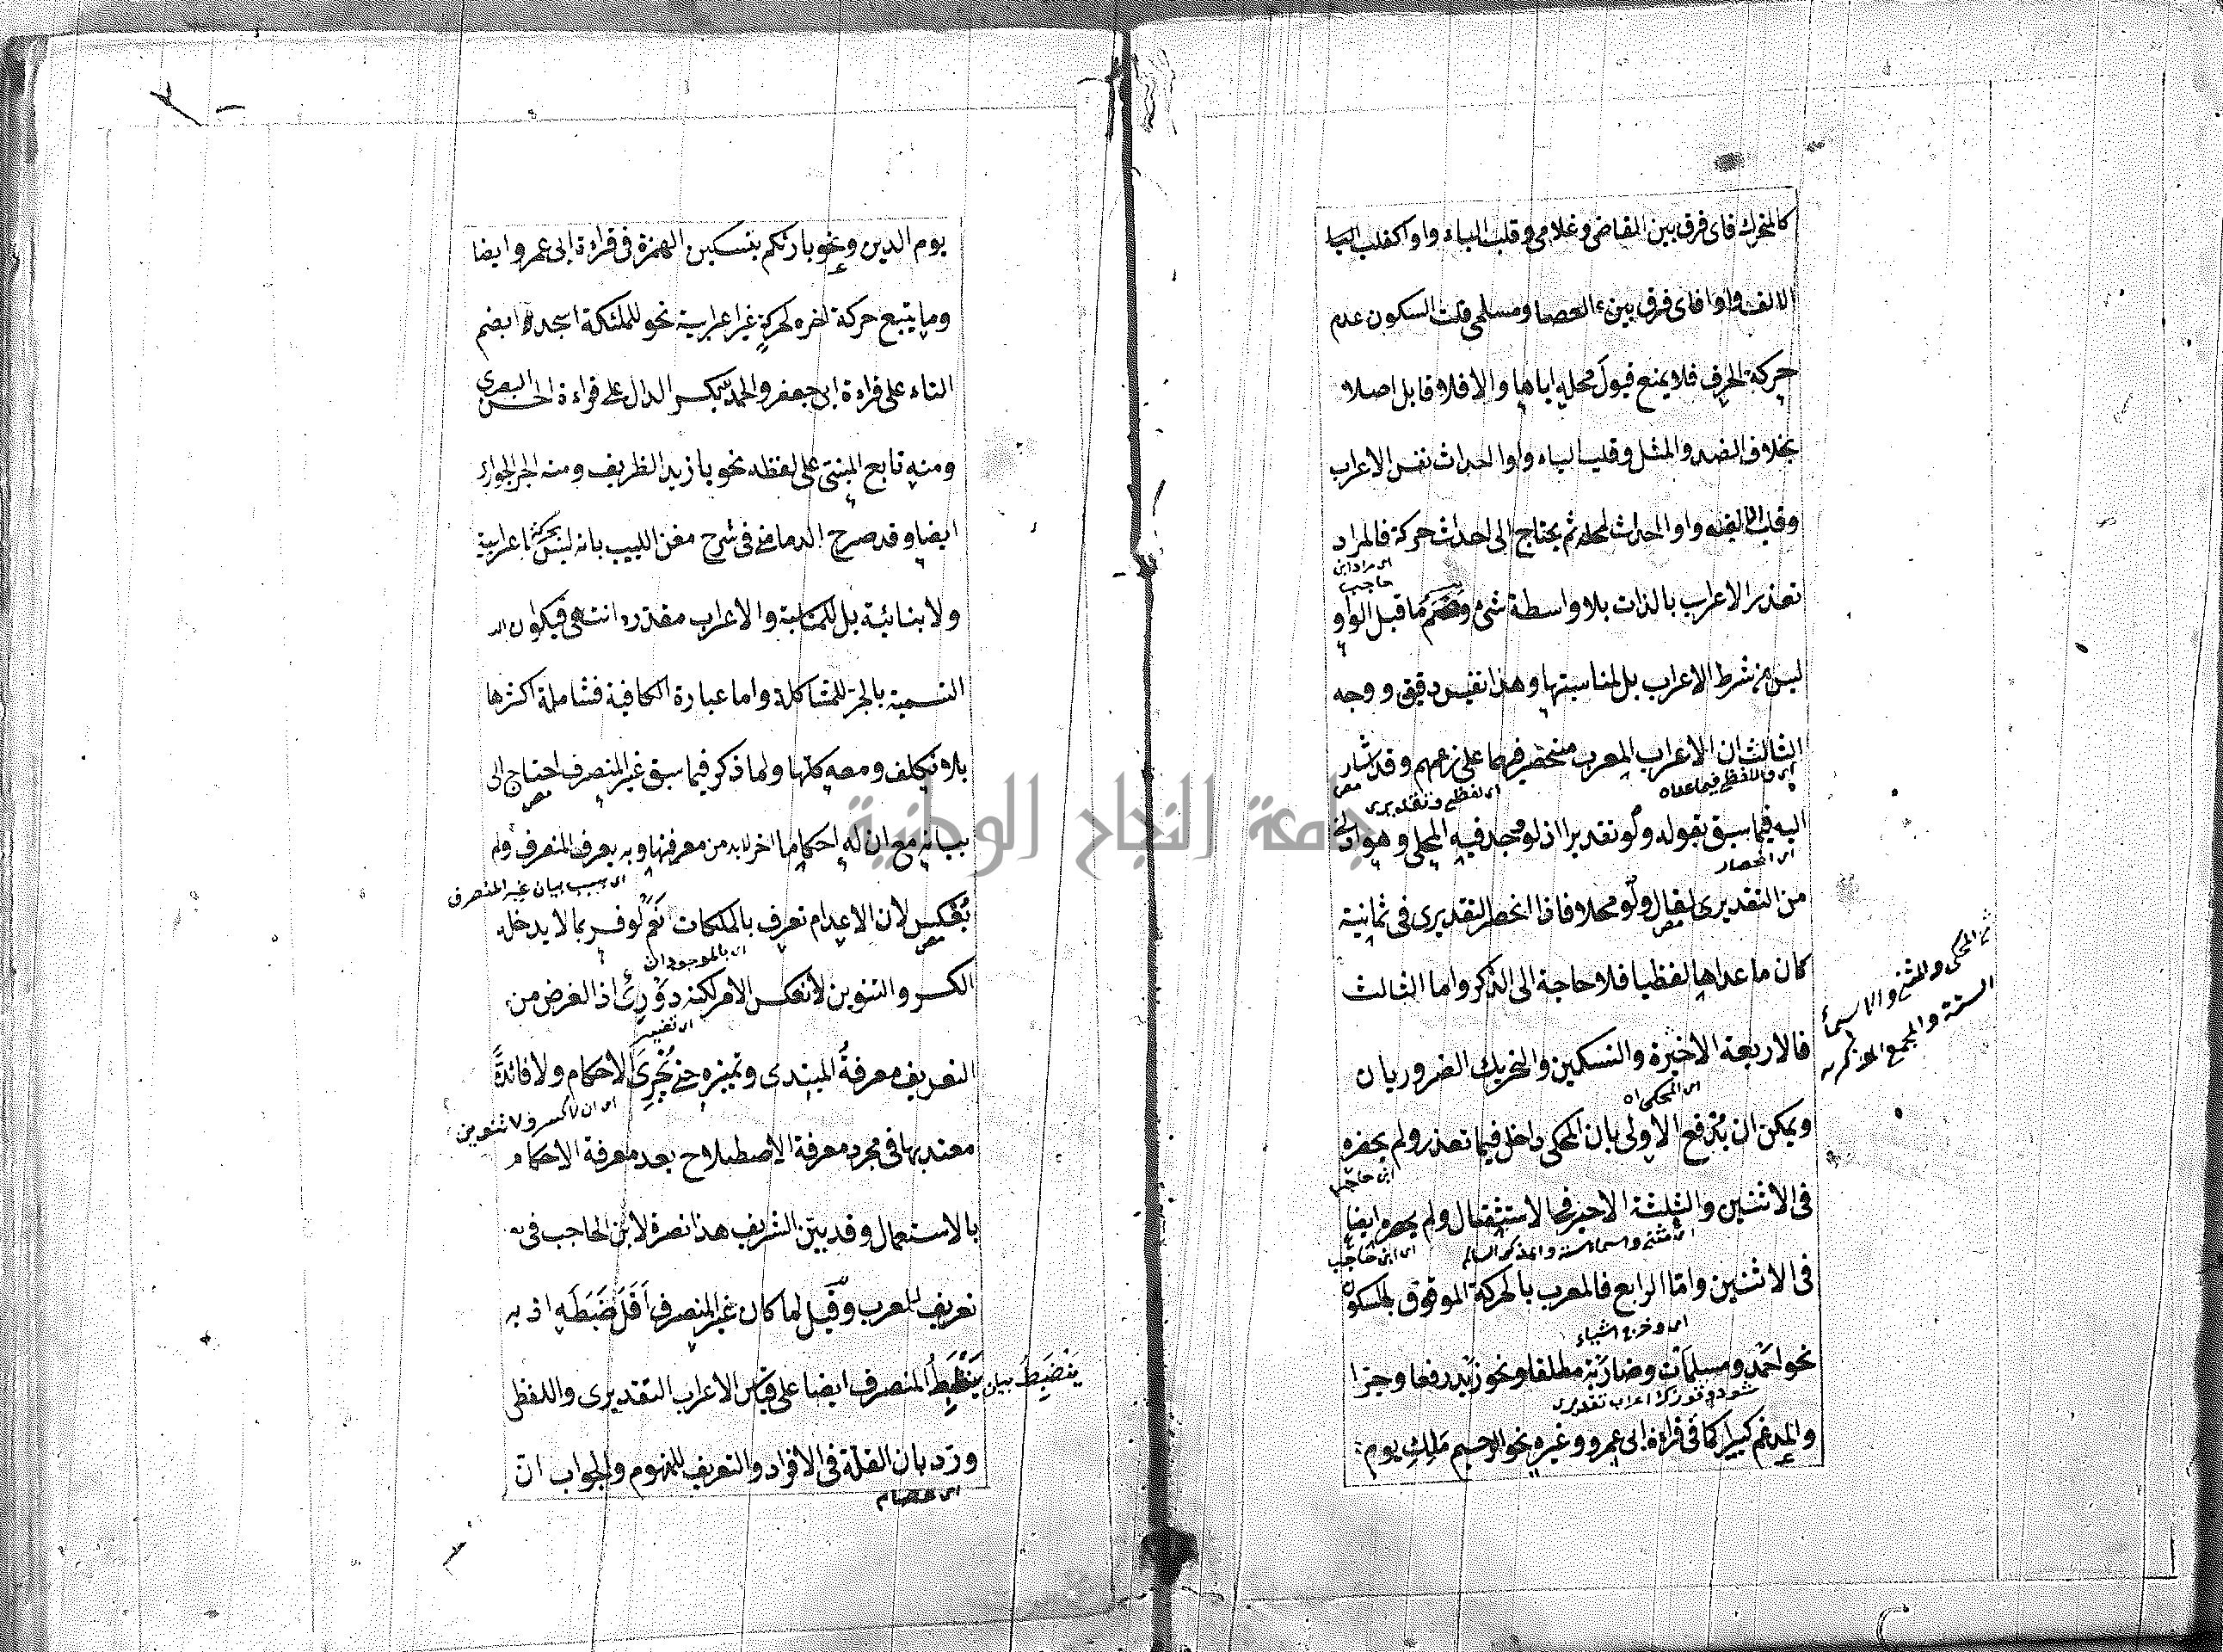 كالمتحرك فاى فرق بين القاضى وغلامى وقلب الياء واوا كقلب الياء
الالف واوا فاى فرق بين العصا ومسلمى قلت السكون عدم
حركة الحرف فلا يمنع قبول محله اياها والافلا قابل اصلا
بخلاف الضد والمثل وقلب الياء واوا احداث نفس الاعراب
وقلب الالف واوا احداث لمحله ثم يحتاج الى احداث حركة فالمراد
اى مراد ابن حاجب
تعذر الاعراب بالذات بلا واسطة شئ وضم ما قبل الواو
ليس من شرط الاعراب بل لمناسبتها وهذا نفيس دقيق ووجه
الثالث ان الاعراب المعرب منحصر فيهما على زعمهم وقد اشار
اى واللفظى فيما عداه
اى لفظى وتقديرى
اليه فيما سبق بقوله ولو تقديرا اذ لو وجد فيه المحلى وهو
اى انحصار
من التقديرى لقال ولو محلا فاذا انحصر التقديرى فى ثمانية
كان ما عداها لفظيا فلا حاجة الى الذكر واما الثالث
فالاربعة الاخيرة والتسكين والتحريك الضروريان
اى المحكى
ويمكن ان يدفع الاولى بان المحكى داخل فيما تعذر ولم يحصره
ابن حاجب
فى الاثنين والثلثة الاخير فى الاستثقال ولم يحصره ايضا
اى ابن حاجب
فى الاثنين واما الرابع فالمعرب بالحركة الموقوف بالسكون
نحو احمد ومسلمات وضاربة مطلقا ونحو زيد رفعا وجرا
والمدغم كبيرا كما فى قراءة ابى عمرو وغيره نحو الرحيم ملك يوم
المحكى والمثنى والاسماء
الستة والجمع المذكر
يوم الدين ونحو بارئكم بتسكين الهمزة فى قراءة ابى عمرو ايضا
وما يتبع حركة اخره لحركة غير اعرابية نحو للملئكة اسجدوا بضم
التاء على قراءة ابى جعفر والحمد لله بكسر الدال على قراءة الحسن البصرى
ومنه تابع المبنى على لفظه نحو يا زيد الظريف ومنه الجر الجوار
ايضا وقد صرح الدمامنى فى شرح مغنى اللبيب بانه ليس بحركة اعرابية
ولا بنائية بل للمناسبة والاعراب مقدره انتهى فيكون
التسمية بالجر للمشاكلة واما عبارة الكافية فشاملة اكثرها
بلا تكلف ومعه كلها ولما ذكر فيما سبق غير المنصرف احتاج الى
بيانه مع ان له احكاما اخر لابد من معرفتها وبه يعرف المنصرف ولم
اى بسبب بيان غير المنصرف
يعكس لان الاعدام تعرف بالملكات نعم لو فسر بما لا يدخله
اى بالموجودات
الكسر والتنوين لانعكس الامر لكنه دورى اذ الغرض من
التعريف معرفة المبتدى وتميزه حتى يجرى الاحكام ولا فائدة
اى ان لا كسر ولا تنوين
معتد بها فى مجرد معرفة الاصطلاح بعد معرفة الاحكام
بالاستعمال وقد بين الشريف هذا نصرة لابن الحاجب فى
تعريف للمعرب وقيل لما كان غير المنصرف اقل ضبطه اذ به
ينضبط المنصرف ايضا على قياس الاعراب التقديرى واللفظى
ينضبط بيان
ورد بان القلة فى الافراد والتعريف للمفهوم والجواب ان
اى عصام
جامعة النجاح الوطنية